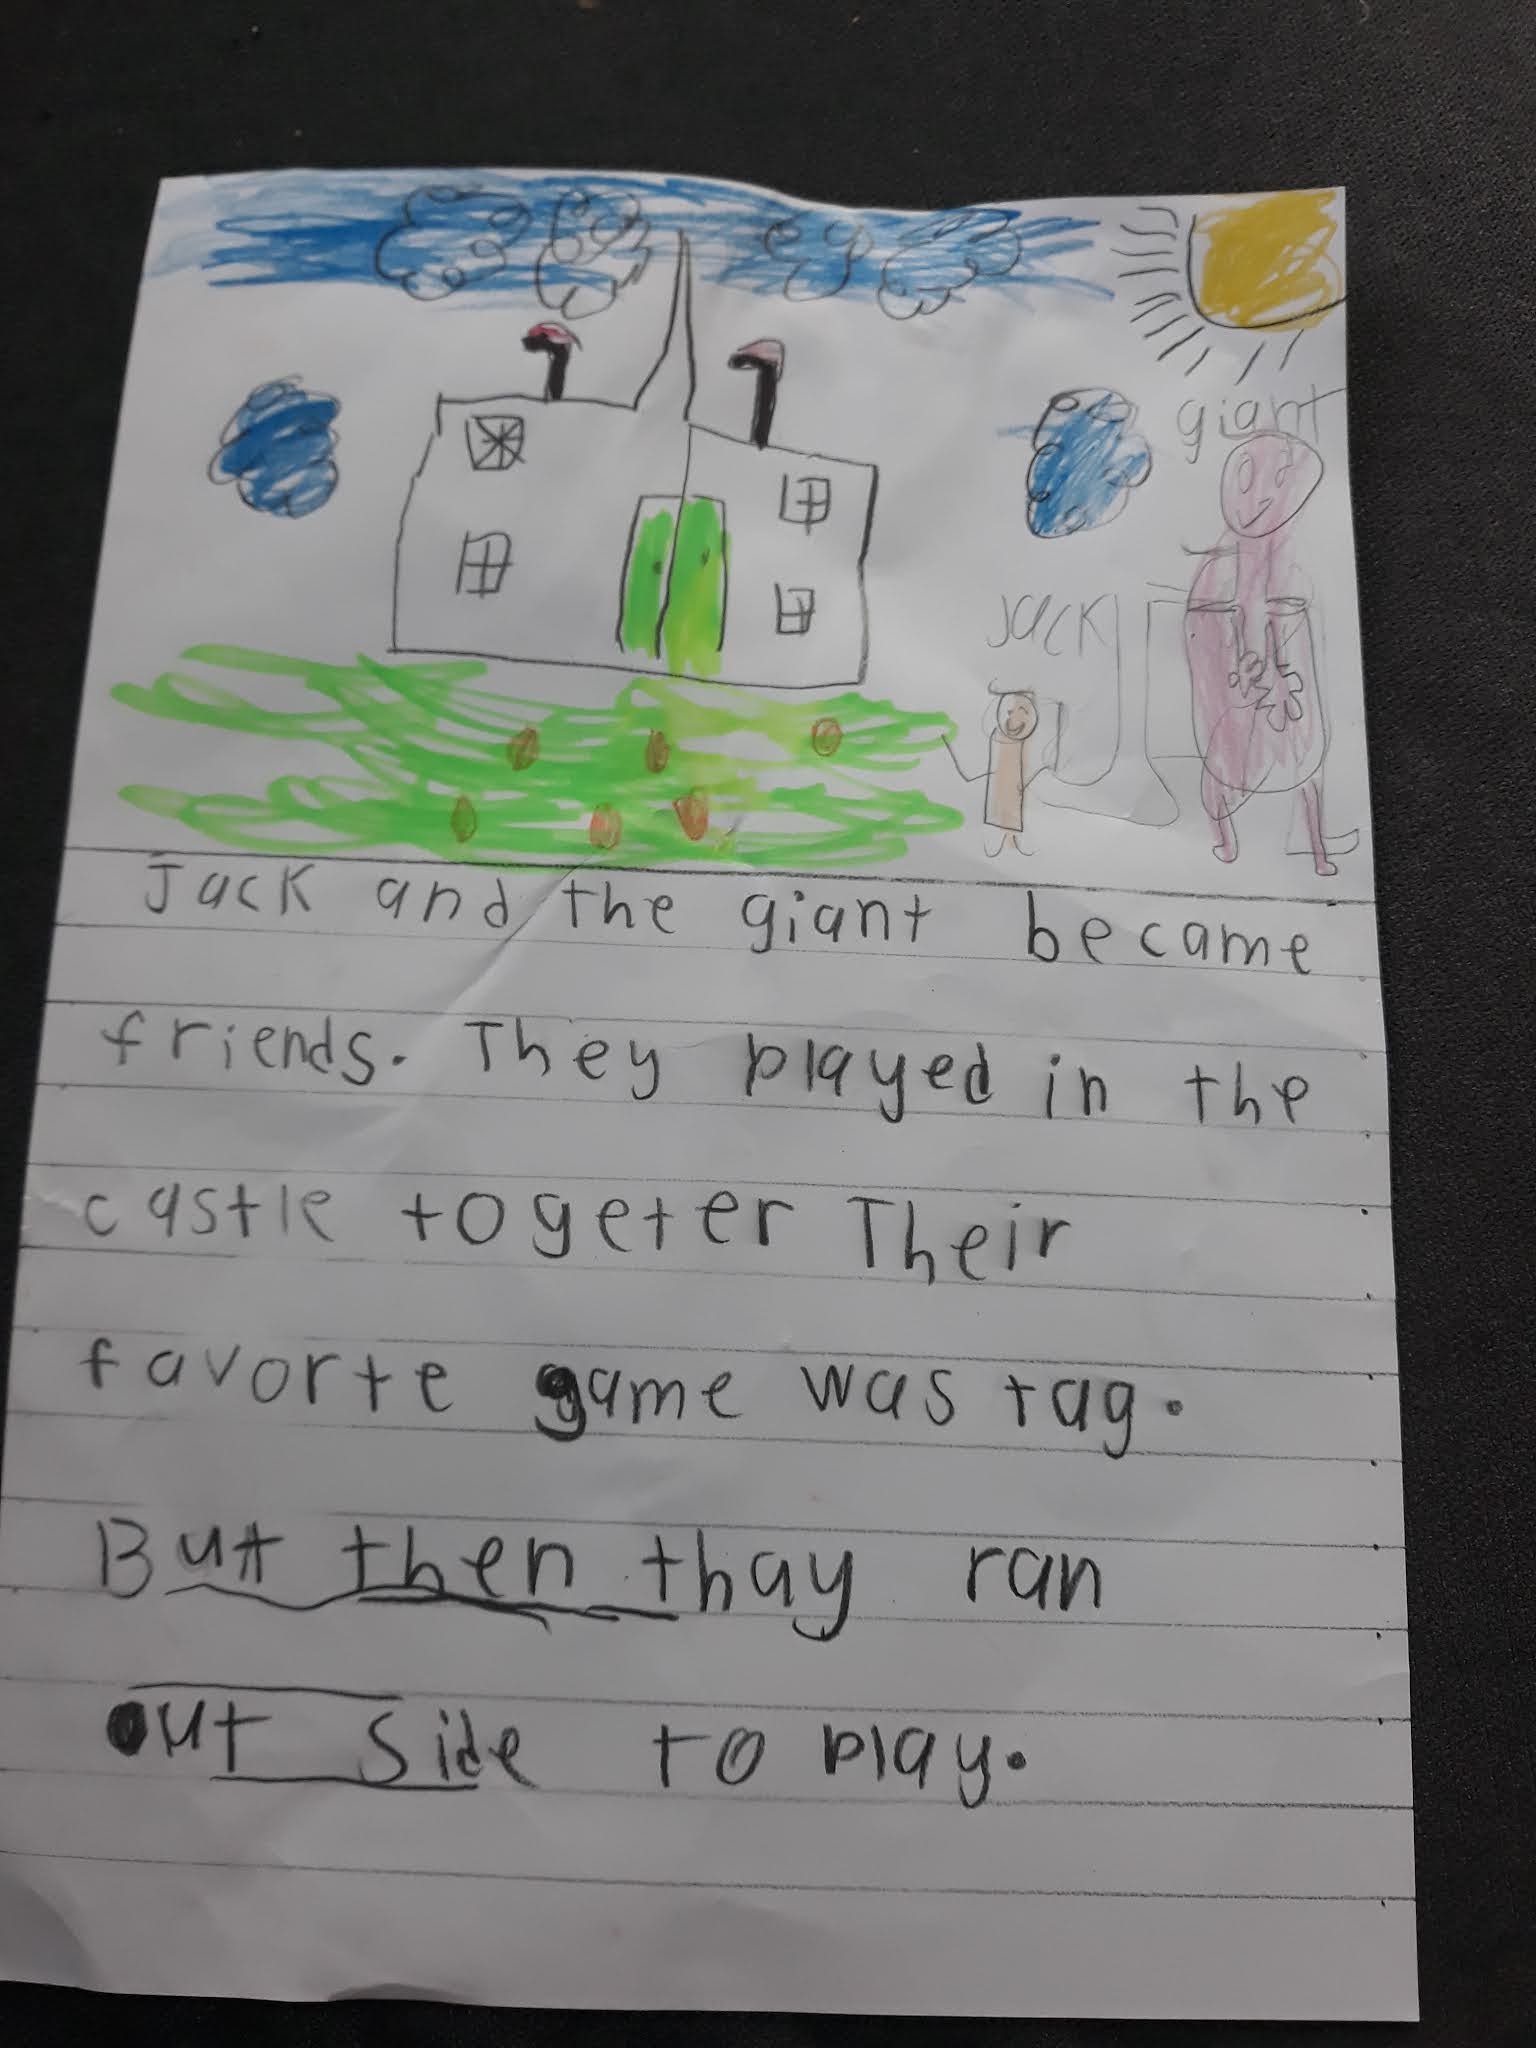 giant
Jack
Jack and the giant became
friends. They played in the
castle togeter Their
favorte game was tag.
But then thay ran
out side to play.